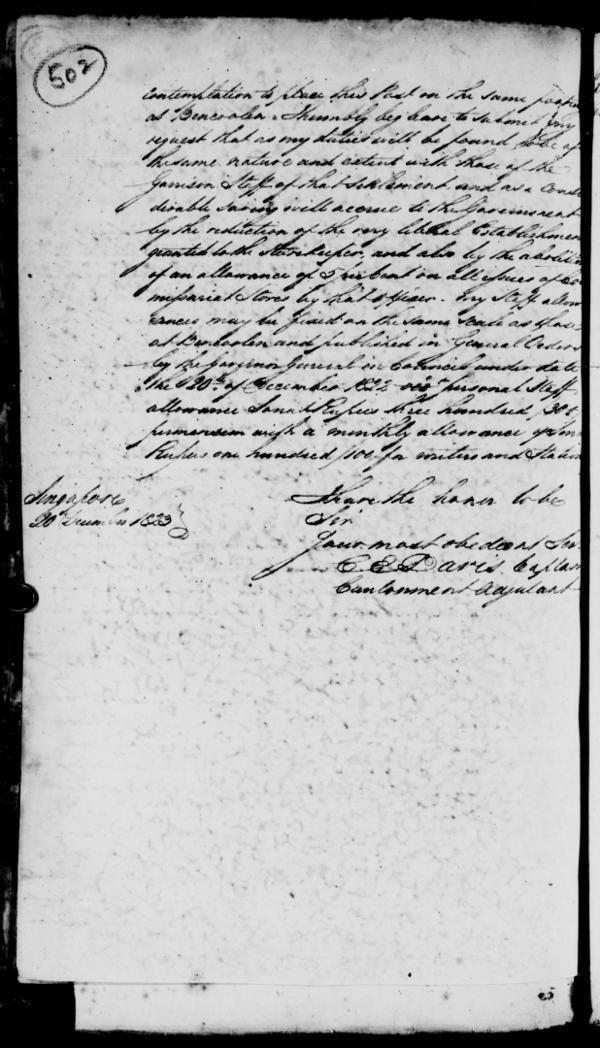 502
contemplation to place this Post on the same footin
as Bencoolen I humbly beg leave to submit my
request that as my duties will be found to be of
the same nature and extent with those of the
Garrison Staff of that Settlement and as a Consi
derable saving will accrue to the Government
by the reduction of the very liberal Establishmen
granted to the Storekeeper, and also by the abolition
of an allowance of 5 per Cent on all issues of Co
missariat Stores by that Officer. my Staff allow
ances may be fixed on the same scale as those
at Bencoolen and published in General Orders
by the Governor General in Council under date
the 20th of December 1822 personal Staff
allowance Sonat Rupees three hundred 300
permensem with a monthly allowance of Son
Rupees one hundred 100 for writers and Station
Singapore
20th December 1823
I have the honor to be
Sir
Your most obedient Ser
C. E. Davis Captain
Cantonment Adjutant